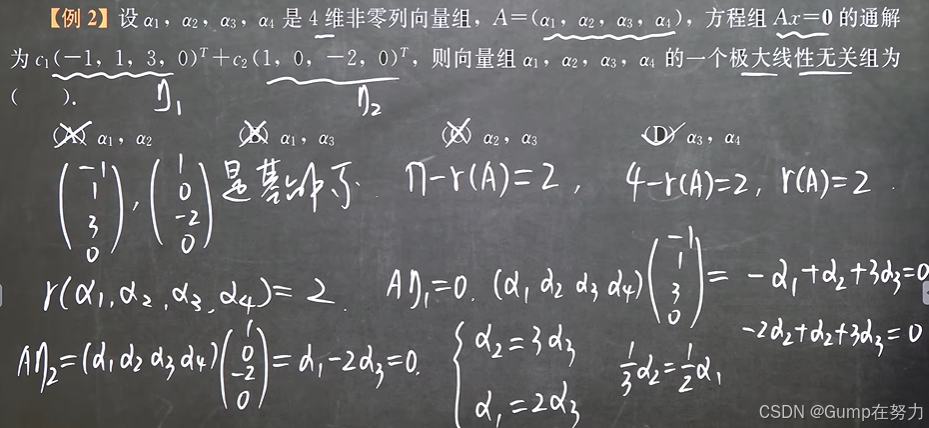 【例2】设 α₁，α₂，α₃，α₄ 是 4 维非零列向量组，A=(α₁，α₂，α₃，α₄)，方程组 Ax=0 的通解
为 c₁(−1，1，3，0)ᵀ+c₂(1，0，−2，0)ᵀ，则向量组 α₁，α₂，α₃，α₄ 的一个极大线性无关组为
(　　).
η₁ η₂
(A) α₁，α₂ (B) α₁，α₃ (C) α₂，α₃ (D) α₃，α₄
(−1 1 3 0), (1 0 −2 0) 是基础解系. n−r(A)=2, 4−r(A)=2, r(A)=2.
r(α₁,α₂,α₃,α₄)=2. Aη₁=0. (α₁ α₂ α₃ α₄)(−1 1 3 0)= −α₁+α₂+3α₃=0
−2α₂+α₂+3α₃=0
Aη₂=(α₁ α₂ α₃ α₄)(1 0 −2 0)=α₁−2α₃=0. { α₂=3α₃ 1/3α₂=1/2α₁
α₁=2α₃
CSDN @Gump在努力